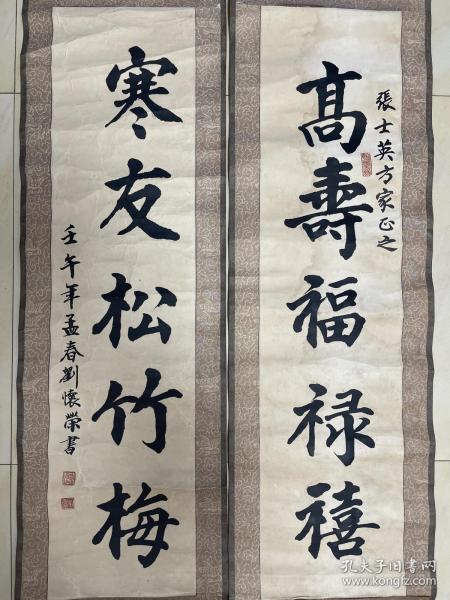 張士英方家正之
髙壽福禄禧
寒友松竹梅
壬午年孟春劉懷榮書
孔夫子旧书网
www.kongfz.com